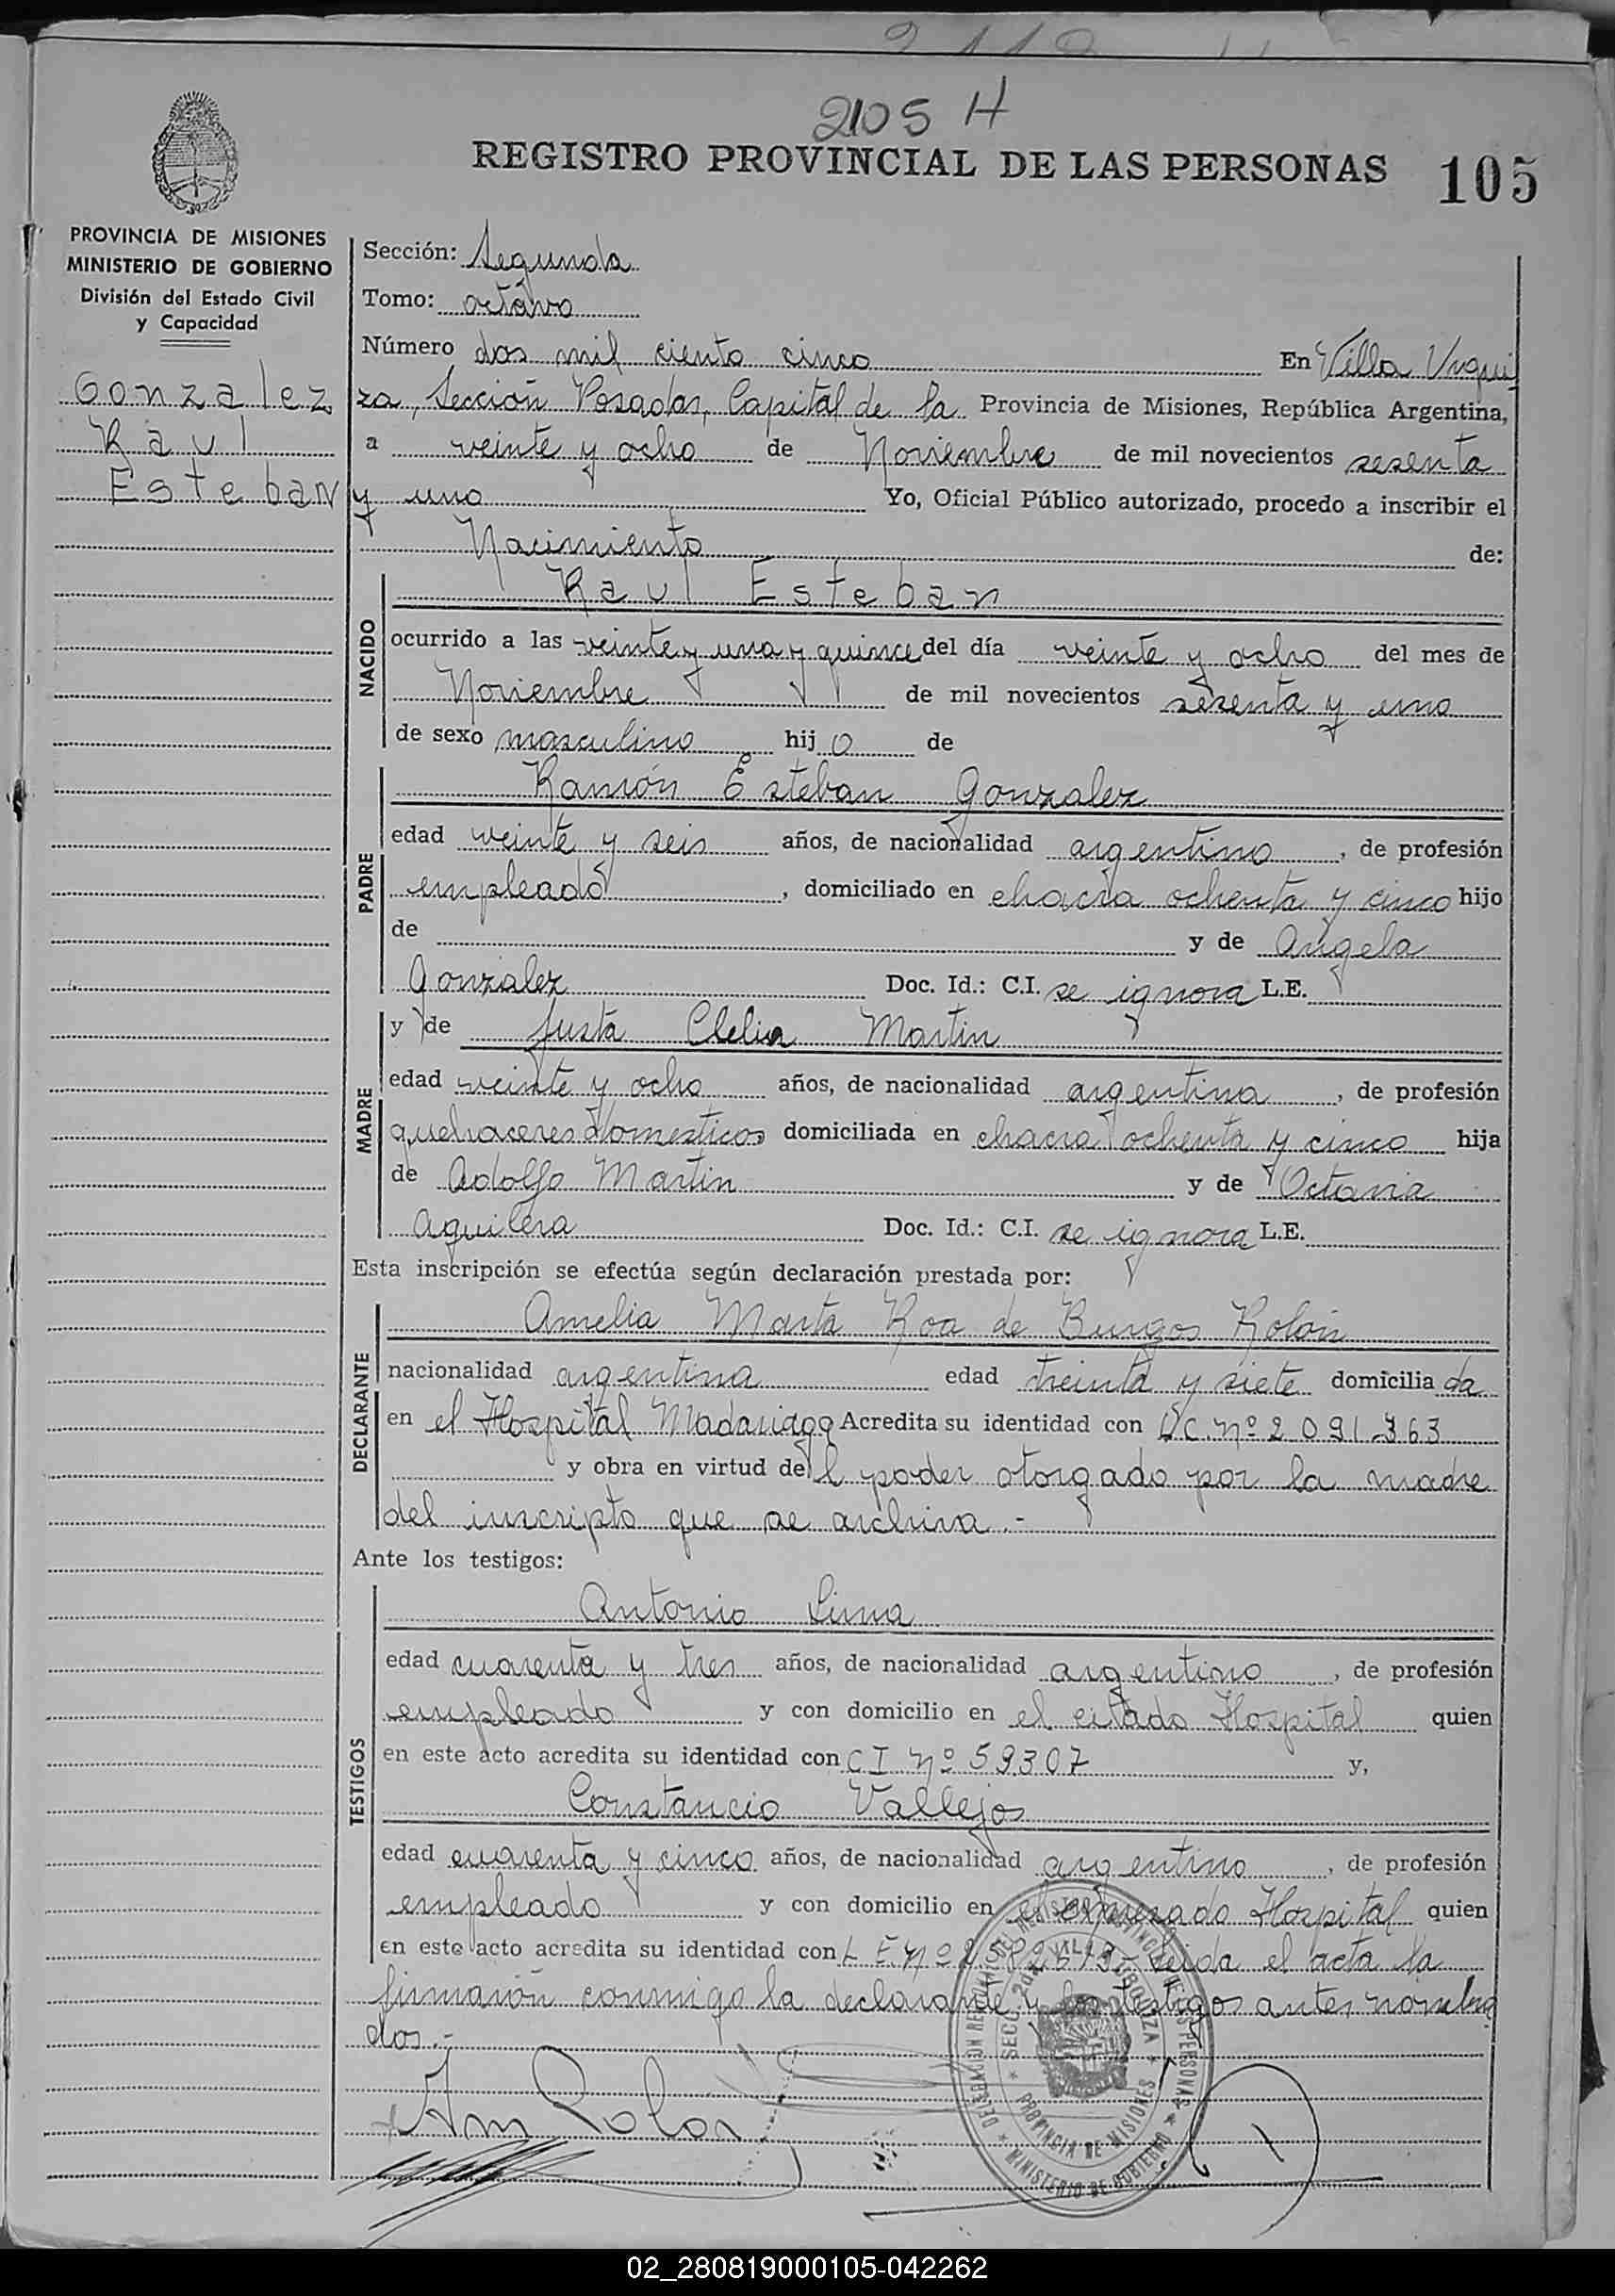 2105 H
REGISTRO PROVINCIAL DE LAS PERSONAS 105
PROVINCIA DE MISIONES
MINISTERIO DE GOBIERNO
División del Estado Civil
y Capacidad
Gonzalez
Raul
Esteban
Sección: Segunda
Tomo: octavo
Número dos mil ciento cinco En Villa Urqui
za, Sección Posadas, Capital de la Provincia de Misiones, República Argentina,
a veinte y ocho de Noviembre de mil novecientos sesenta
y uno Yo, Oficial Público autorizado, procedo a inscribir el
Nacimiento de:
NACIDO
Raul Esteban
ocurrido a las veinte y una y quince del día veinte y ocho del mes de
Noviembre de mil novecientos sesenta y uno
de sexo masculino hijo de
PADRE
Ramón Esteban Gonzalez
edad veinte y seis años, de nacionalidad argentino, de profesión
empleado, domiciliado en chacra ochenta y cinco hijo
de y de Angela
Gonzalez Doc. Id.: C.I. se ignora L.E.
MADRE
y de Justa Clelia Martin
edad veinte y ocho años, de nacionalidad argentina, de profesión
quehaceres domesticos domiciliada en chacra ochenta y cinco hija
de Adolfo Martin y de Octavia
Aguilera Doc. Id.: C.I. se ignora L.E.
Esta inscripción se efectúa según declaración prestada por:
DECLARANTE
Amelia Marta Roa de Burgos Rolón
nacionalidad argentina edad treinta y siete domiciliada
en el Hospital Madariaga Acredita su identidad con LC. Nº 2091363
y obra en virtud del poder otorgado por la madre
del inscripto que se archiva.-
Ante los testigos:
TESTIGOS
Antonio Lima
edad cuarenta y tres años, de nacionalidad argentino, de profesión
empleado y con domicilio en el citado Hospital quien
en este acto acredita su identidad con CI Nº 59.307 y,
Constancio Vallejos
edad cuarenta y cinco años, de nacionalidad argentino, de profesión
empleado y con domicilio en el expresado Hospital quien
en este acto acredita su identidad con L E. Nº Leida el acta la
firmaron conmigo la declarante y los testigos antes nombra
dos.-
Am Rolon
DELEGACION REGISTRO PROVINCIAL DE LAS PERSONAS
SECC. 2da. VILLA URQUIZA
PROVINCIA DE MISIONES
MINISTERIO DE GOBIERNO
02_280819000105-042262